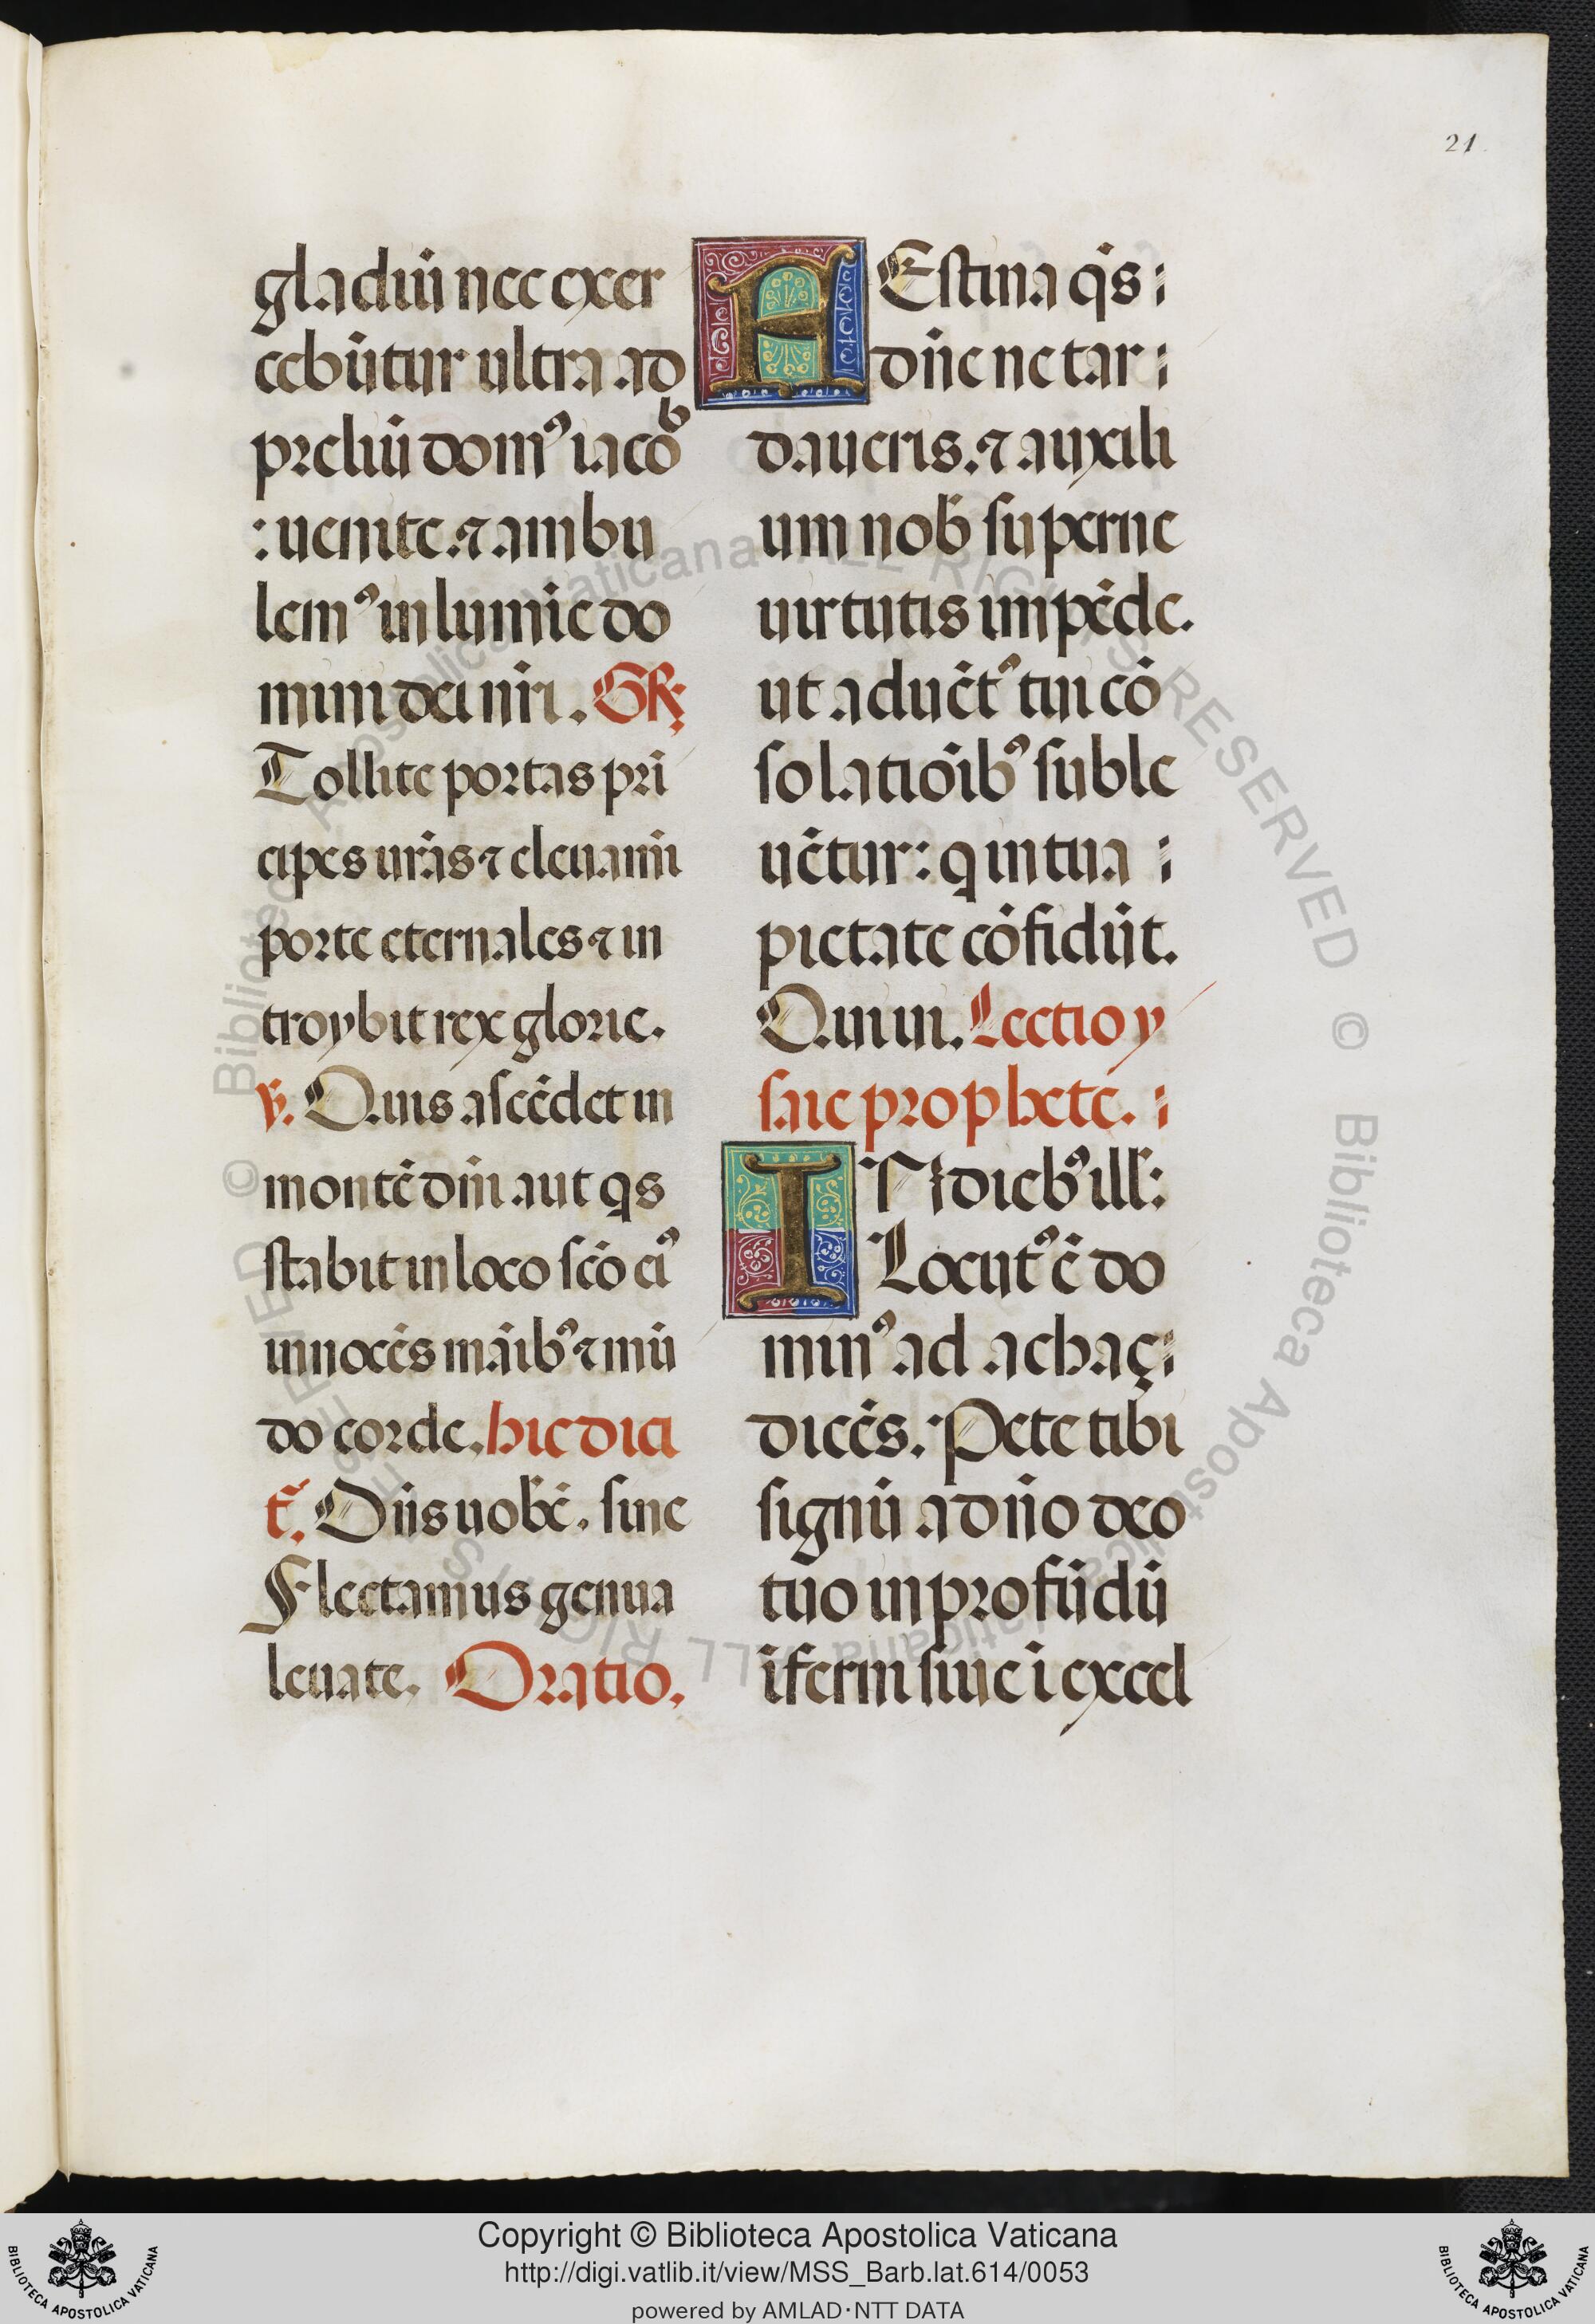 21
gladiū nec exer
cebūtur ultra ad
preliū domꝰ iacob
: uenite. ⁊ ambu
lemꝰ in lumīe do
mini dei nr̄i. GR̄:
Tollite portas prī
cipes ur̄as ⁊ eleuamī
porte eternales ⁊ in
troybit rex glorie.
℣. Quis ascēdet in
montē dn̄i aut qs
stabit in loco scō eiꝰ
innocēs māibꝰ ⁊ mū
do corde. hic dici
t̄. Dn̄s uobc̄. sine
Flectamus genua
leuate. Oratio.
HEstina q̄s:
dn̄e ne tar:
daueris. ⁊ auxili
um nob̄ superne
uirtutis impēde.
ut aduētꝰ tui cō
solatiōibꝰ suble
uētur: q in tua :
pietate cōfidūt.
Qui ui. Lectio y
saie prophete. :
IN diebꝰ ill̄:
Locutꝰ ē do
minꝰ ad achaç:
dicēs. Pete tibi
signū a dn̄o deo
tuo in profūdū
īferni siue ī excel
© Biblioteca Apostolica Vaticana ALL RIGHTS RESERVED © Biblioteca Apostolica Vaticana ALL RIGHTS RESERVED
Copyright © Biblioteca Apostolica Vaticana
http://digi.vatlib.it/view/MSS_Barb.lat.614/0053
powered by AMLAD·NTT DATA
BIBLIOTECA APOSTOLICA VATICANA
BIBLIOTECA APOSTOLICA VATICANA